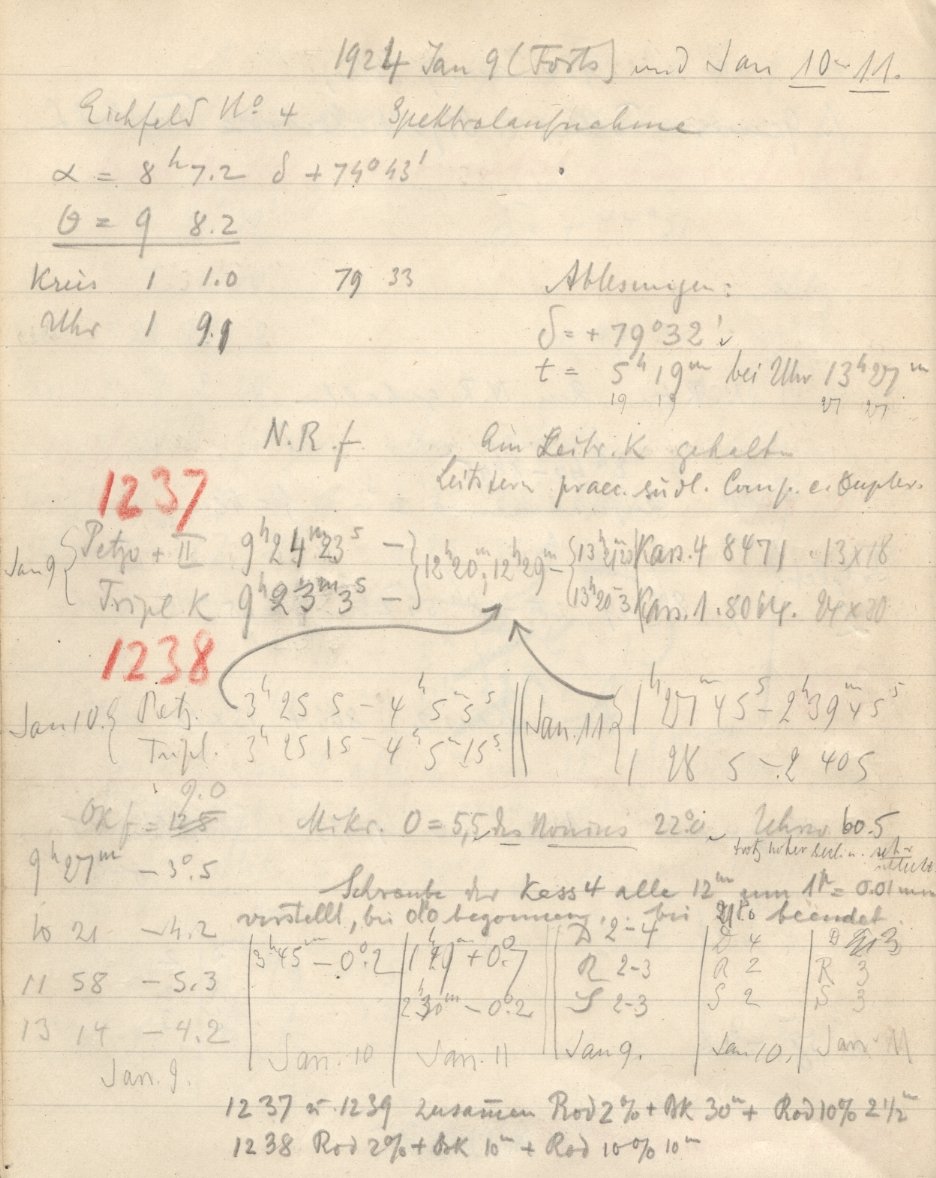 1924 Jan 9 (Forts) und Jan 10 u 11.
Eichfeld No 4 Spektralaufnahme
α = 8h 7.2 δ + 79° 43'
θ = 9 8.2
Kreis 1 1.0 79 33 Ablesungen:
Uhr 1 9.1 δ = + 79° 32'
t = 5h 19m bei Uhr 13h 27m
19 19 27 27
N.R.f. Am Leitr. K gehalten
Leitstern praec. südl. Comp. e. Dupler.
1237
Jan 9 { Petzv + II 9h 24m 23s — } 12h 20m, 12h 29m — { 13h Kass. 4 8471 13x18
Tripl. K 9h 23m 3s — 13h 20 3 Kass. 1. 8064. 24x30
1238
Jan 10. { Petz. 3h 25 5 – 4h 5m 5s || Jan. 11 { 1h 27m 45s – 2h 39m 45s
Tripl. 3h 25 15 – 4h 5m 15s 1 28 5 – 2 40 5
9.0
Okf = 12.8 Mikr. 0 = 5,5 des Nonius 22°. Uhrw 60.5
9h 27m – 3°.5 trotz hoher
Schraube der Kass 4 alle 12m um 1p = 0.01 mm
verstellt, bei 0p0 begonnen, bei beendet.
10 21 – 4.2 3h 45m – 0°.2 1h 29m + 0°.7 D 2-4 D 4 D 3
11 58 – 5.3 2h 30m – 0°.2 R 2-3 R 2 R 3
13 14 – 4.2 S 2-3 S 2 S 3
Jan. 9. Jan. 10 Jan. 11 Jan 9. Jan 10. Jan. 11
1237 u 1239 zusammen Rod 2% + BK 30m + Rod 10% 2½m
1238 Rod 2% + BK 10m + Rod 10% 10m